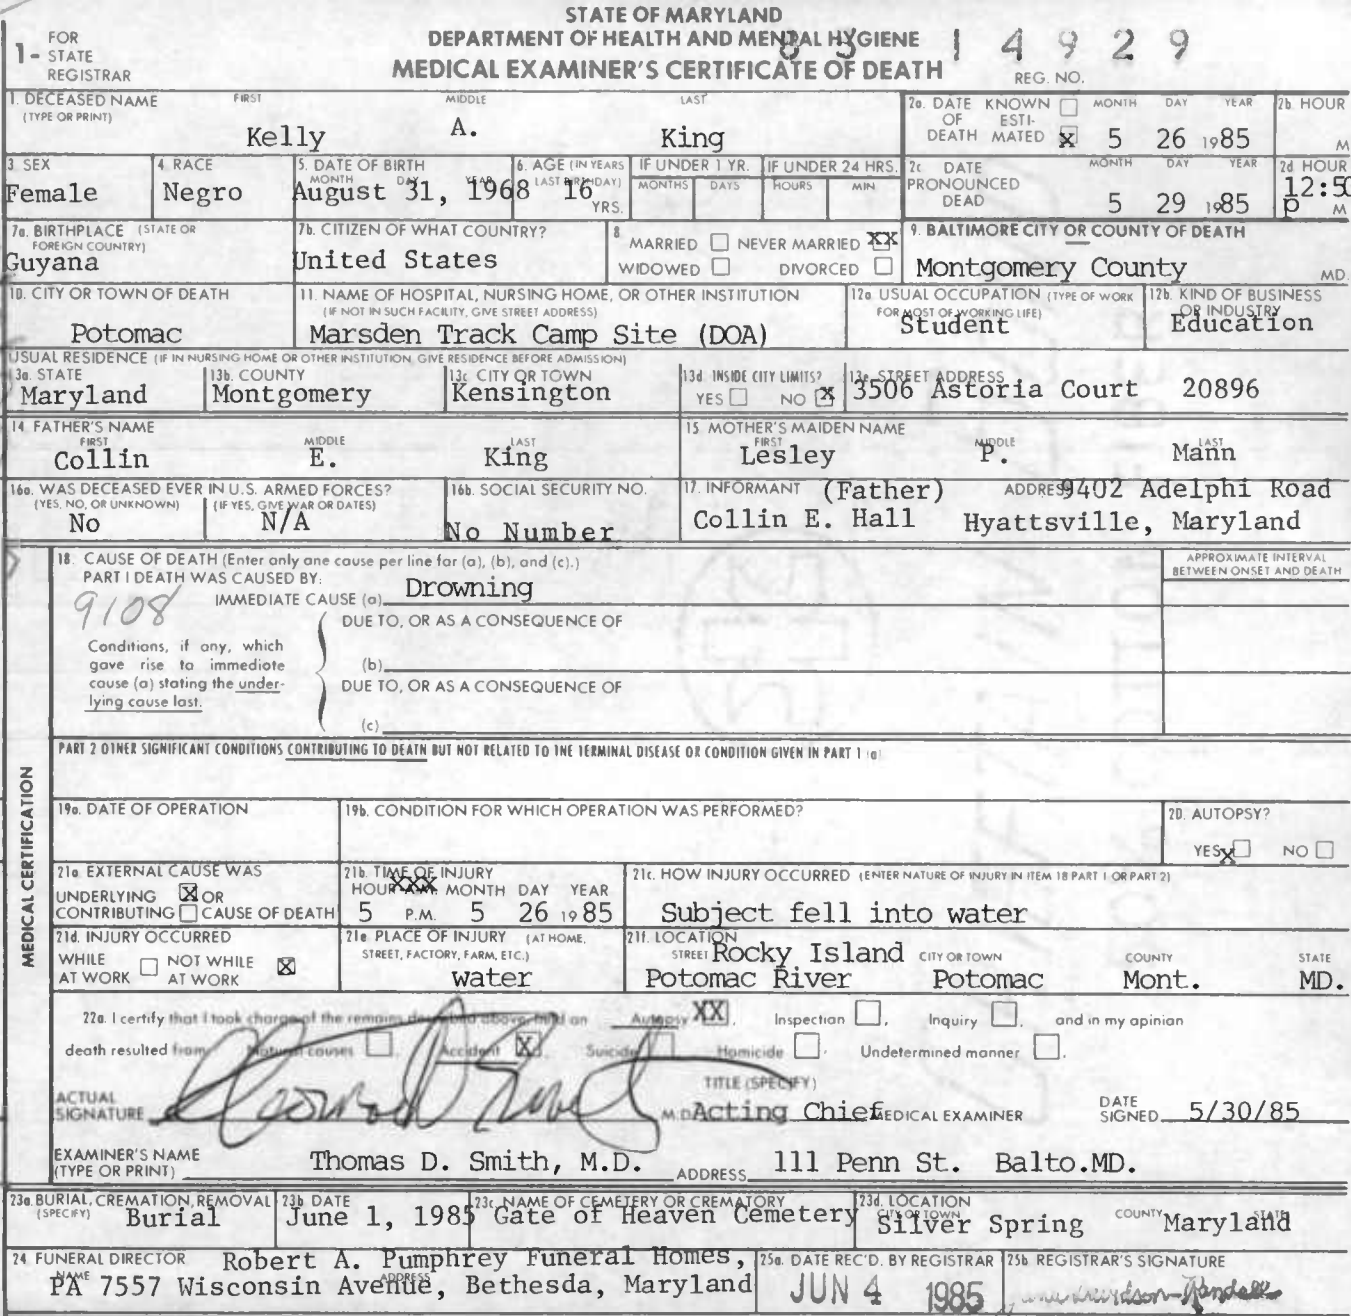 STATE OF MARYLAND
DEPARTMENT OF HEALTH AND MENTAL HYGIENE
MEDICAL EXAMINER'S CERTIFICATE OF DEATH
1- FOR STATE REGISTRAR
85 14929
REG. NO.
1. DECEASED NAME (TYPE OR PRINT) FIRST MIDDLE LAST
Kelly A. King
2a. DATE OF DEATH KNOWN ☐ ESTIMATED ☒ MONTH DAY YEAR
5 26 1985
2b. HOUR M
3. SEX
Female
4. RACE
Negro
5. DATE OF BIRTH MONTH DAY YEAR
August 31, 1968
6. AGE (IN YEARS LAST BIRTHDAY)
16 YRS.
IF UNDER 1 YR. MONTHS DAYS
IF UNDER 24 HRS. HOURS MIN
2c. DATE PRONOUNCED DEAD MONTH DAY YEAR
5 29 1985
2d HOUR
12:50 p M
7a. BIRTHPLACE (STATE OR FOREIGN COUNTRY)
Guyana
7b. CITIZEN OF WHAT COUNTRY?
United States
8 MARRIED ☐ NEVER MARRIED XX
WIDOWED ☐ DIVORCED ☐
9. BALTIMORE CITY OR COUNTY OF DEATH
Montgomery County MD.
10. CITY OR TOWN OF DEATH
Potomac
11. NAME OF HOSPITAL, NURSING HOME, OR OTHER INSTITUTION
(IF NOT IN SUCH FACILITY, GIVE STREET ADDRESS)
Marsden Track Camp Site (DOA)
12a. USUAL OCCUPATION (TYPE OF WORK FOR MOST OF WORKING LIFE)
Student
12b. KIND OF BUSINESS OR INDUSTRY
Education
USUAL RESIDENCE (IF IN NURSING HOME OR OTHER INSTITUTION, GIVE RESIDENCE BEFORE ADMISSION)
13a. STATE
Maryland
13b. COUNTY
Montgomery
13c CITY OR TOWN
Kensington
13d INSIDE CITY LIMITS?
YES ☐ NO ☒
13e. STREET ADDRESS
3506 Astoria Court 20896
14. FATHER'S NAME FIRST MIDDLE LAST
Collin E. King
15. MOTHER'S MAIDEN NAME FIRST MIDDLE LAST
Lesley P. Mann
16a. WAS DECEASED EVER IN U.S. ARMED FORCES?
(YES, NO, OR UNKNOWN) (IF YES, GIVE WAR OR DATES)
No N/A
16b. SOCIAL SECURITY NO.
No Number
17. INFORMANT (Father) ADDRESS 9402 Adelphi Road
Collin E. Hall Hyattsville, Maryland
MEDICAL CERTIFICATION
18. CAUSE OF DEATH (Enter only one cause per line for (a), (b), and (c).)
APPROXIMATE INTERVAL BETWEEN ONSET AND DEATH
PART I DEATH WAS CAUSED BY:
IMMEDIATE CAUSE (a) Drowning
9108
DUE TO, OR AS A CONSEQUENCE OF
Conditions, if any, which gave rise to immediate cause (a) stating the underlying cause last.
(b)
DUE TO, OR AS A CONSEQUENCE OF
(c)
PART 2 OTHER SIGNIFICANT CONDITIONS CONTRIBUTING TO DEATH BUT NOT RELATED TO THE TERMINAL DISEASE OR CONDITION GIVEN IN PART 1 (a)
19a. DATE OF OPERATION
19b. CONDITION FOR WHICH OPERATION WAS PERFORMED?
20. AUTOPSY?
YES X☐ NO ☐
21a EXTERNAL CAUSE WAS
UNDERLYING ☒ OR
CONTRIBUTING ☐ CAUSE OF DEATH
21b. TIME OF INJURY
HOUR A.M. XXX MONTH DAY YEAR
5 P.M. 5 26 1985
21c. HOW INJURY OCCURRED (ENTER NATURE OF INJURY IN ITEM 18 PART 1 OR PART 2)
Subject fell into water
21d. INJURY OCCURRED
WHILE AT WORK ☐ NOT WHILE AT WORK ☒
21e PLACE OF INJURY (AT HOME, STREET, FACTORY, FARM, ETC.)
water
21f. LOCATION STREET CITY OR TOWN COUNTY STATE
Rocky Island
Potomac River Potomac Mont. MD.
22a. I certify that I took charge of the remains described above, held an Autopsy XX, Inspection ☐, Inquiry ☐, and in my opinion
death resulted from Natural causes ☐, Accident ☒, Suicide ☐ Homicide ☐, Undetermined manner ☐.
ACTUAL SIGNATURE M.D.
TITLE (SPECIFY)
Acting Chief MEDICAL EXAMINER
DATE SIGNED 5/30/85
EXAMINER'S NAME (TYPE OR PRINT) Thomas D. Smith, M.D. ADDRESS 111 Penn St. Balto.MD.
23a. BURIAL, CREMATION, REMOVAL (SPECIFY)
Burial
23b. DATE
June 1, 1985
23c. NAME OF CEMETERY OR CREMATORY
Gate of Heaven Cemetery
23d. LOCATION CITY OR TOWN COUNTY STATE
Silver Spring Maryland
24 FUNERAL DIRECTOR NAME ADDRESS
Robert A. Pumphrey Funeral Homes,
PA 7557 Wisconsin Avenue, Bethesda, Maryland
25a. DATE REC'D. BY REGISTRAR
JUN 4 1985
25b REGISTRAR'S SIGNATURE